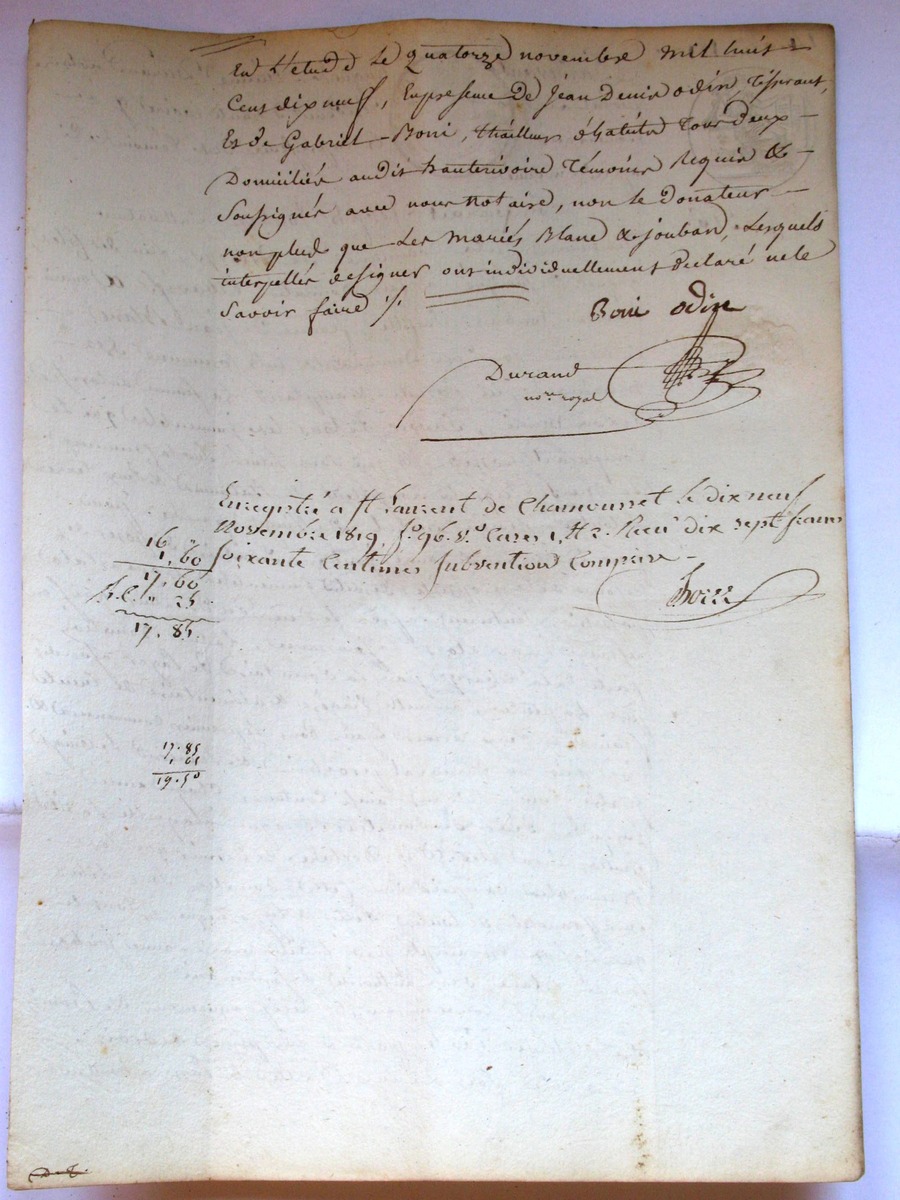 En L'etude Le quatorze novembre mil huit
Cent dix neuf, En presence de Jean Denis odin, Tisserant,
Et de Gabriel Boni, thailleur d'habits Tous deux
Domiciliés audit hauterivoire Témoins Requis &
Soussignés avec nous Notaire, non le Donateur
non plus que Les Mariés Blanc & Joubar, Lesquels
interpellés de signer ont individuellement Declaré ne le
Savoir faire ./.
Boni odin
Durand
no.re royal
Enregistré a St Laurent de Chamousset Le dix neuf
Novembre 1819, f.o 96. V.o Cases 1, et 2. Recu dix sept francs
soixante Centimes Subvention Comprise
16 "
1, 60
17, 60
25
17. 85
17. 85
1 65
19. 50